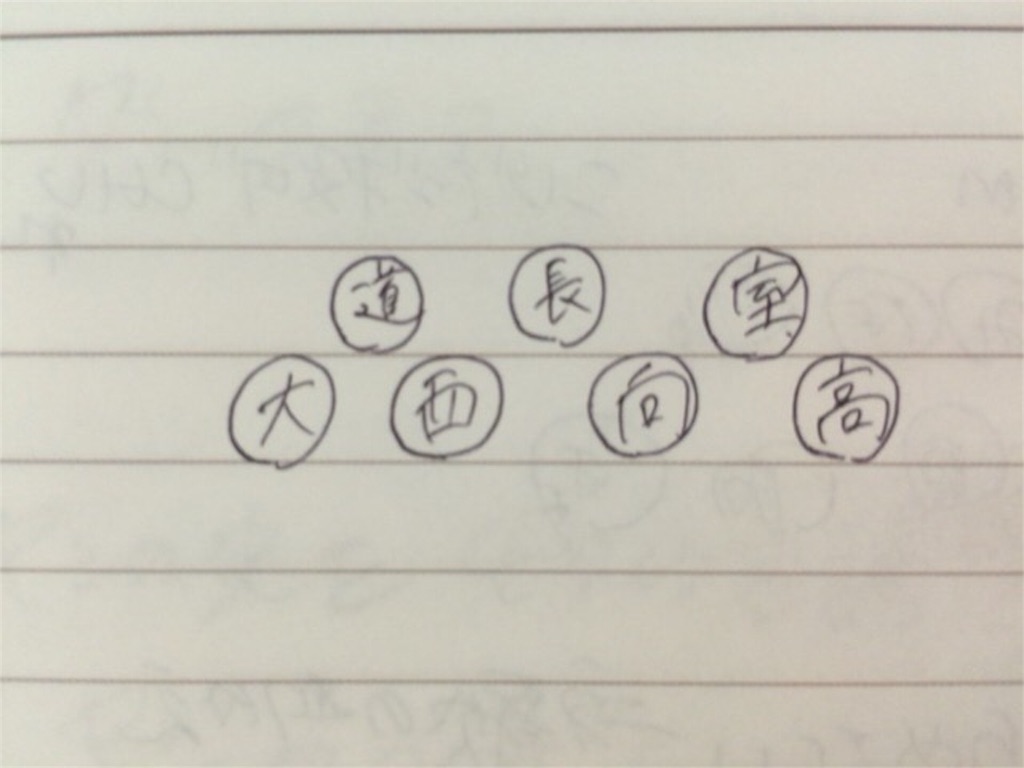 道 長 室
大 西 向 高